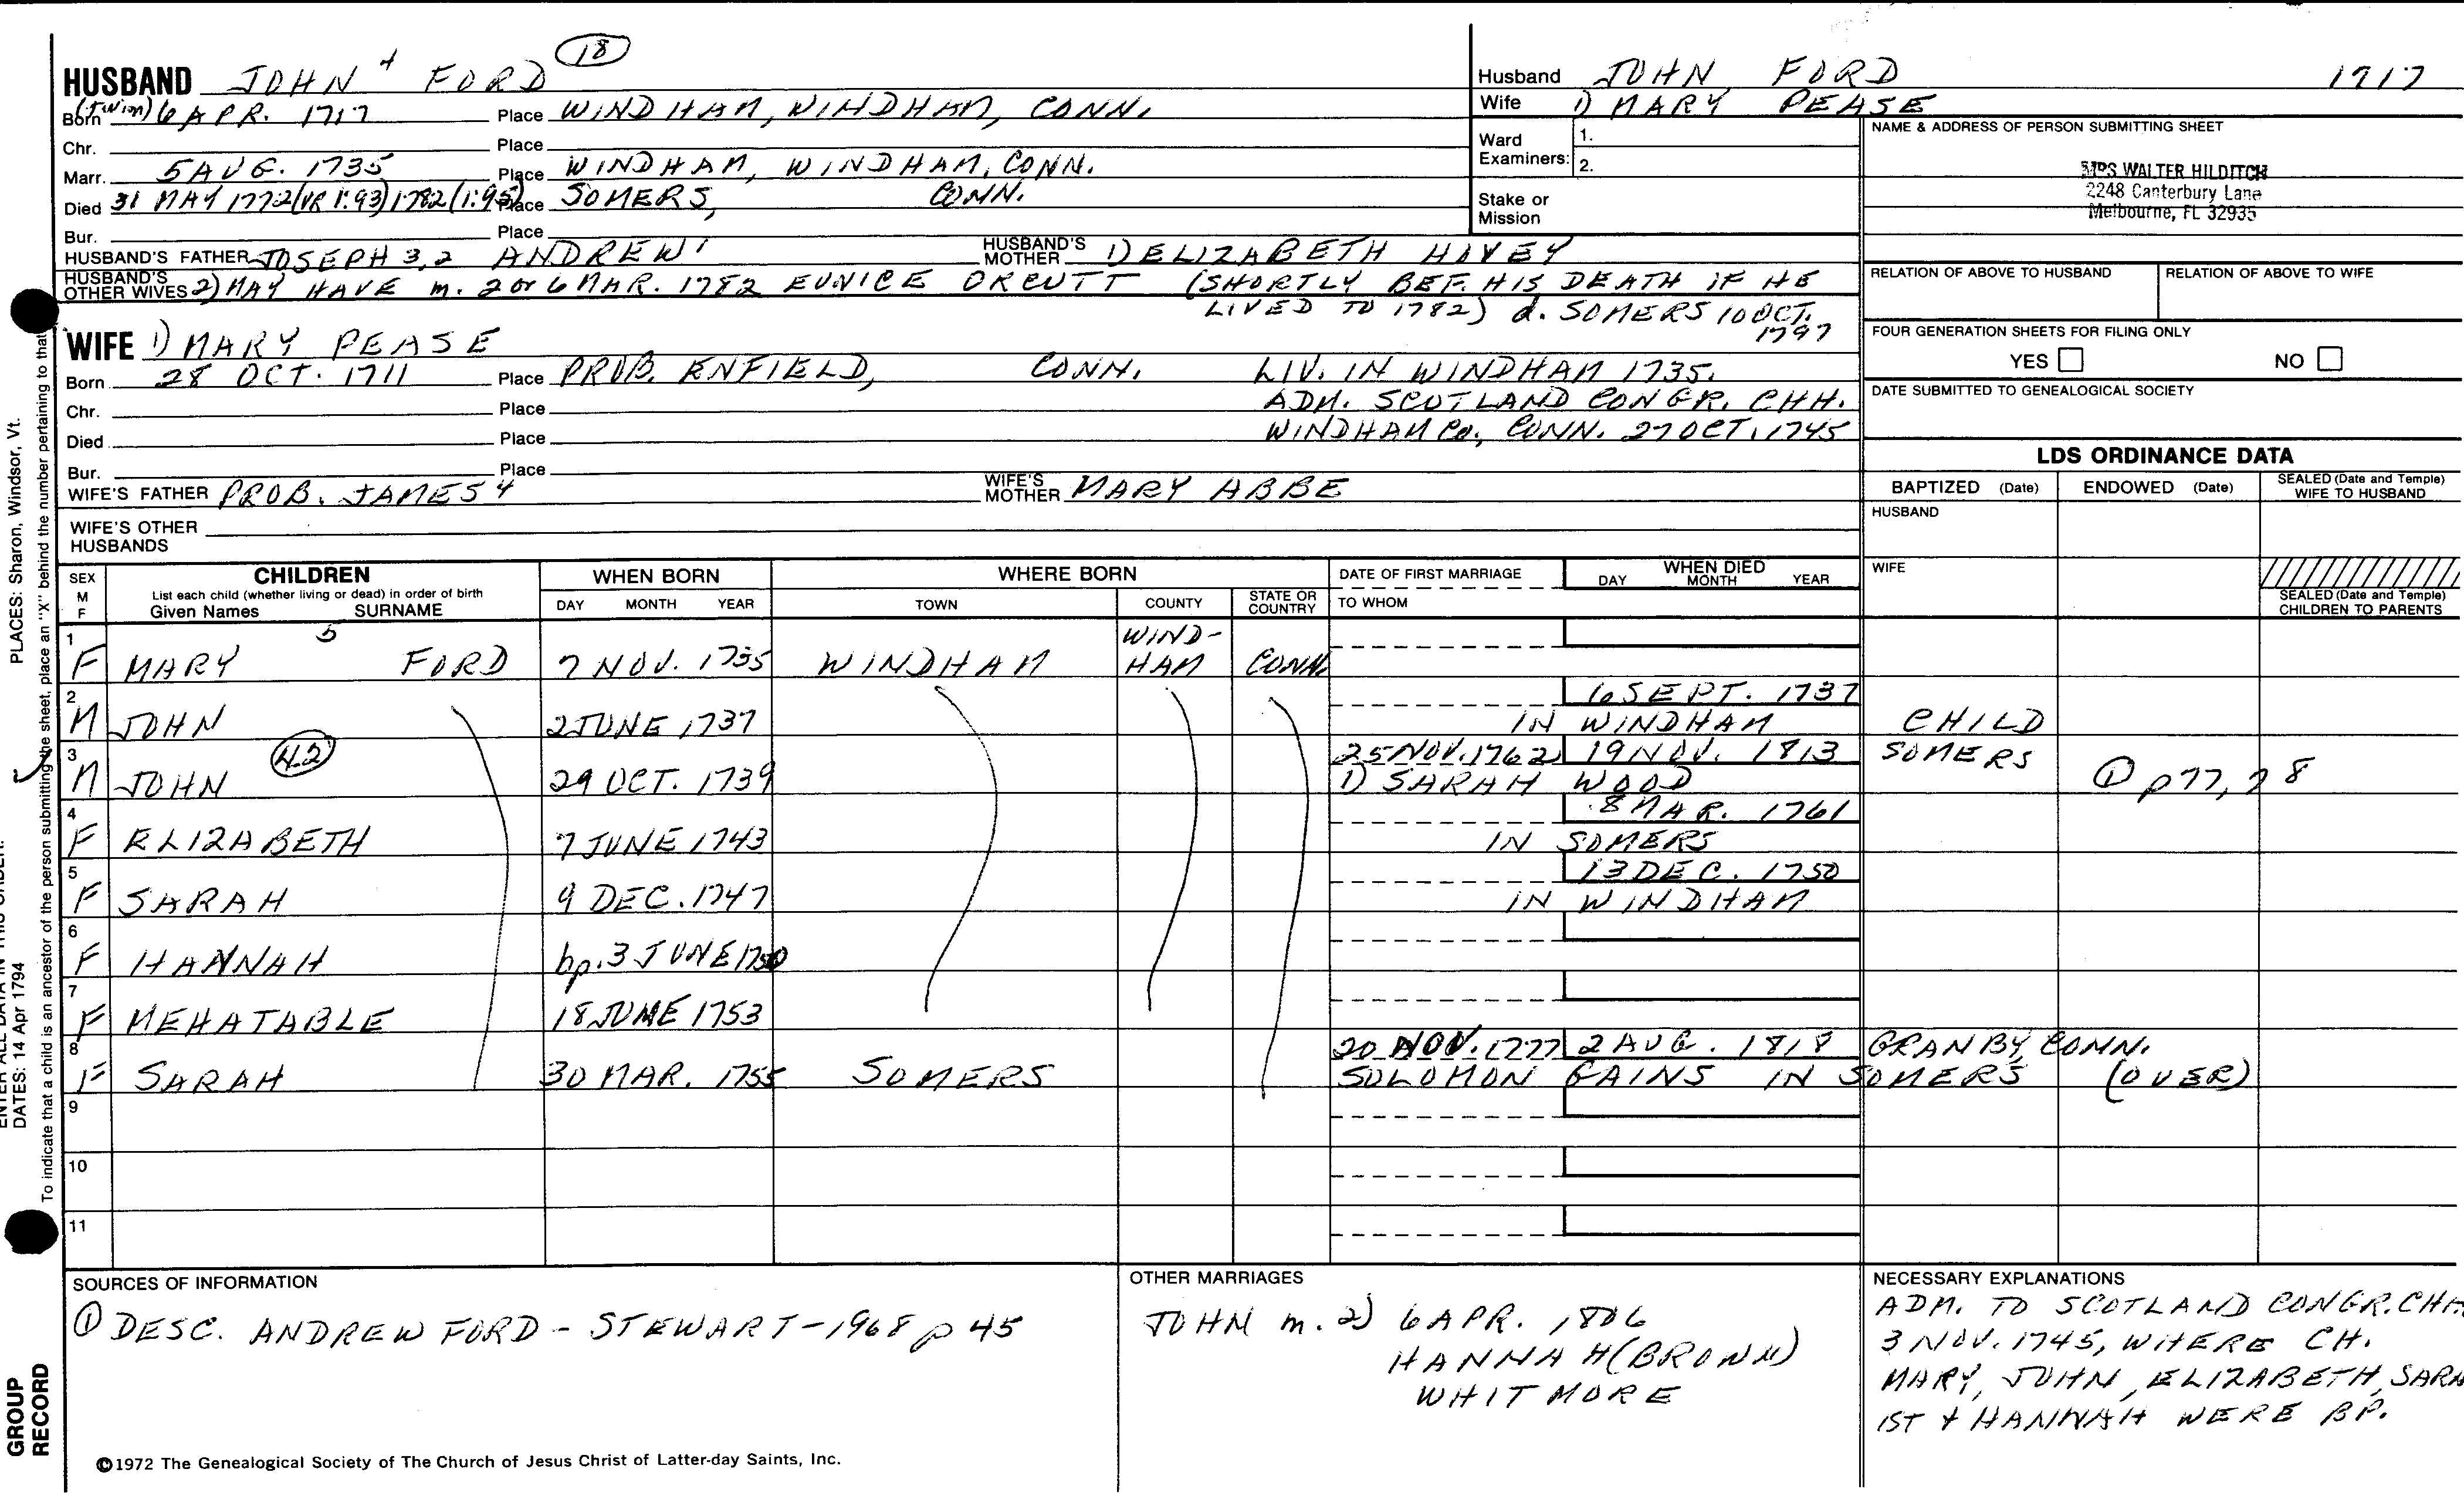 HUSBAND JOHN 4 FORD 18
Born (TWIN) 6 APR. 1717 Place WINDHAM, WINDHAM, CONN.
Chr. Place
Marr. 5 AUG. 1735 Place WINDHAM, WINDHAM, CONN.
Died 31 MAY 1772 (VR 1:93) 1782 (1:95) Place SOMERS, CONN.
Bur. Place
HUSBAND'S FATHER JOSEPH 3,2 ANDREW 1 HUSBAND'S MOTHER 1) ELIZABETH HOVEY
HUSBAND'S OTHER WIVES 2) MAY HAVE m. 2 or 6 MAR. 1782 EUNICE ORCUTT (SHORTLY BEF. HIS DEATH IF HE
LIVED TO 1782) d. SOMERS 10 OCT.
1797
WIFE 1) MARY PEASE
Born 28 OCT. 1711 Place PROB. ENFIELD, CONN. LIV. IN WINDHAM 1735.
Chr. Place ADM. SCOTLAND CONGR. CHH.
Died Place WINDHAM CO., CONN. 27 OCT. 1745
Bur. Place
WIFE'S FATHER PROB. JAMES 4 WIFE'S MOTHER MARY ABBE
WIFE'S OTHER HUSBANDS
Husband JOHN FORD 1717
Wife 1) MARY PEASE
Ward Examiners: 1.
2.
Stake or Mission
NAME & ADDRESS OF PERSON SUBMITTING SHEET
MRS WALTER HILDITCH
2248 Canterbury Lane
Melbourne, FL 32935
RELATION OF ABOVE TO HUSBAND RELATION OF ABOVE TO WIFE
FOUR GENERATION SHEETS FOR FILING ONLY
YES NO
DATE SUBMITTED TO GENEALOGICAL SOCIETY
LDS ORDINANCE DATA
BAPTIZED (Date) ENDOWED (Date) SEALED (Date and Temple) WIFE TO HUSBAND
HUSBAND
WIFE
SEALED (Date and Temple) CHILDREN TO PARENTS
SEX M F CHILDREN WHEN BORN WHERE BORN DATE OF FIRST MARRIAGE WHEN DIED
List each child (whether living or dead) in order of birth
Given Names SURNAME DAY MONTH YEAR TOWN COUNTY STATE OR COUNTRY TO WHOM DAY MONTH YEAR
1 F MARY 5 FORD 7 NOV. 1735 WINDHAM WIND-HAM CONN.
2 M JOHN 2 JUNE 1737 6 SEPT. 1737
IN WINDHAM CHILD
3 M JOHN 42 29 OCT. 1739 25 NOV. 1762 19 NOV. 1813 SOMERS
1) SARAH WOOD 1 p 77, 78
4 F ELIZABETH 7 JUNE 1743 8 MAR. 1761
IN SOMERS
5 F SARAH 9 DEC. 1747 13 DEC. 1750
IN WINDHAM
6 F HANNAH bp. 3 JUNE 1750
7 F MEHATABLE 18 JUNE 1753
8 F SARAH 30 MAR. 1755 SOMERS 20 NOV. 1777 2 AUG. 1818 GRANBY, CONN.
SOLOMON GAINS IN SOMERS (OVER)
9
10
11
SOURCES OF INFORMATION
1 DESC. ANDREW FORD - STEWART - 1968 p 45
OTHER MARRIAGES
JOHN m. 2) 6 APR. 1806
HANNAH (BROWN)
WHITMORE
NECESSARY EXPLANATIONS
ADM. TO SCOTLAND CONGR. CHH.
3 NOV. 1745, WHERE CH.
MARY, JOHN, ELIZABETH, SARA
1ST & HANNAH WERE BP.
©1972 The Genealogical Society of The Church of Jesus Christ of Latter-day Saints, Inc.
PLACES: Sharon, Windsor, Vt.
ENTER ALL DATA IN THIS ORDER:
DATES: 14 Apr 1794
To indicate that a child is an ancestor of the person submitting the sheet, place an "X" behind the number pertaining to that
GROUP
RECORD